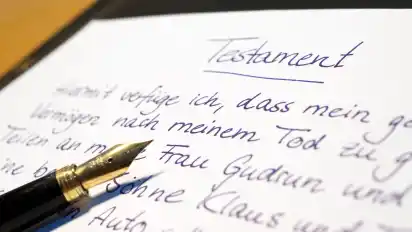 Testament
Hiermit verfüge ich, dass mein g
Vermögen nach meinem Tod zu g
Teilen an m Frau Gudrun und
ne b Söhne Klaus und
Auto